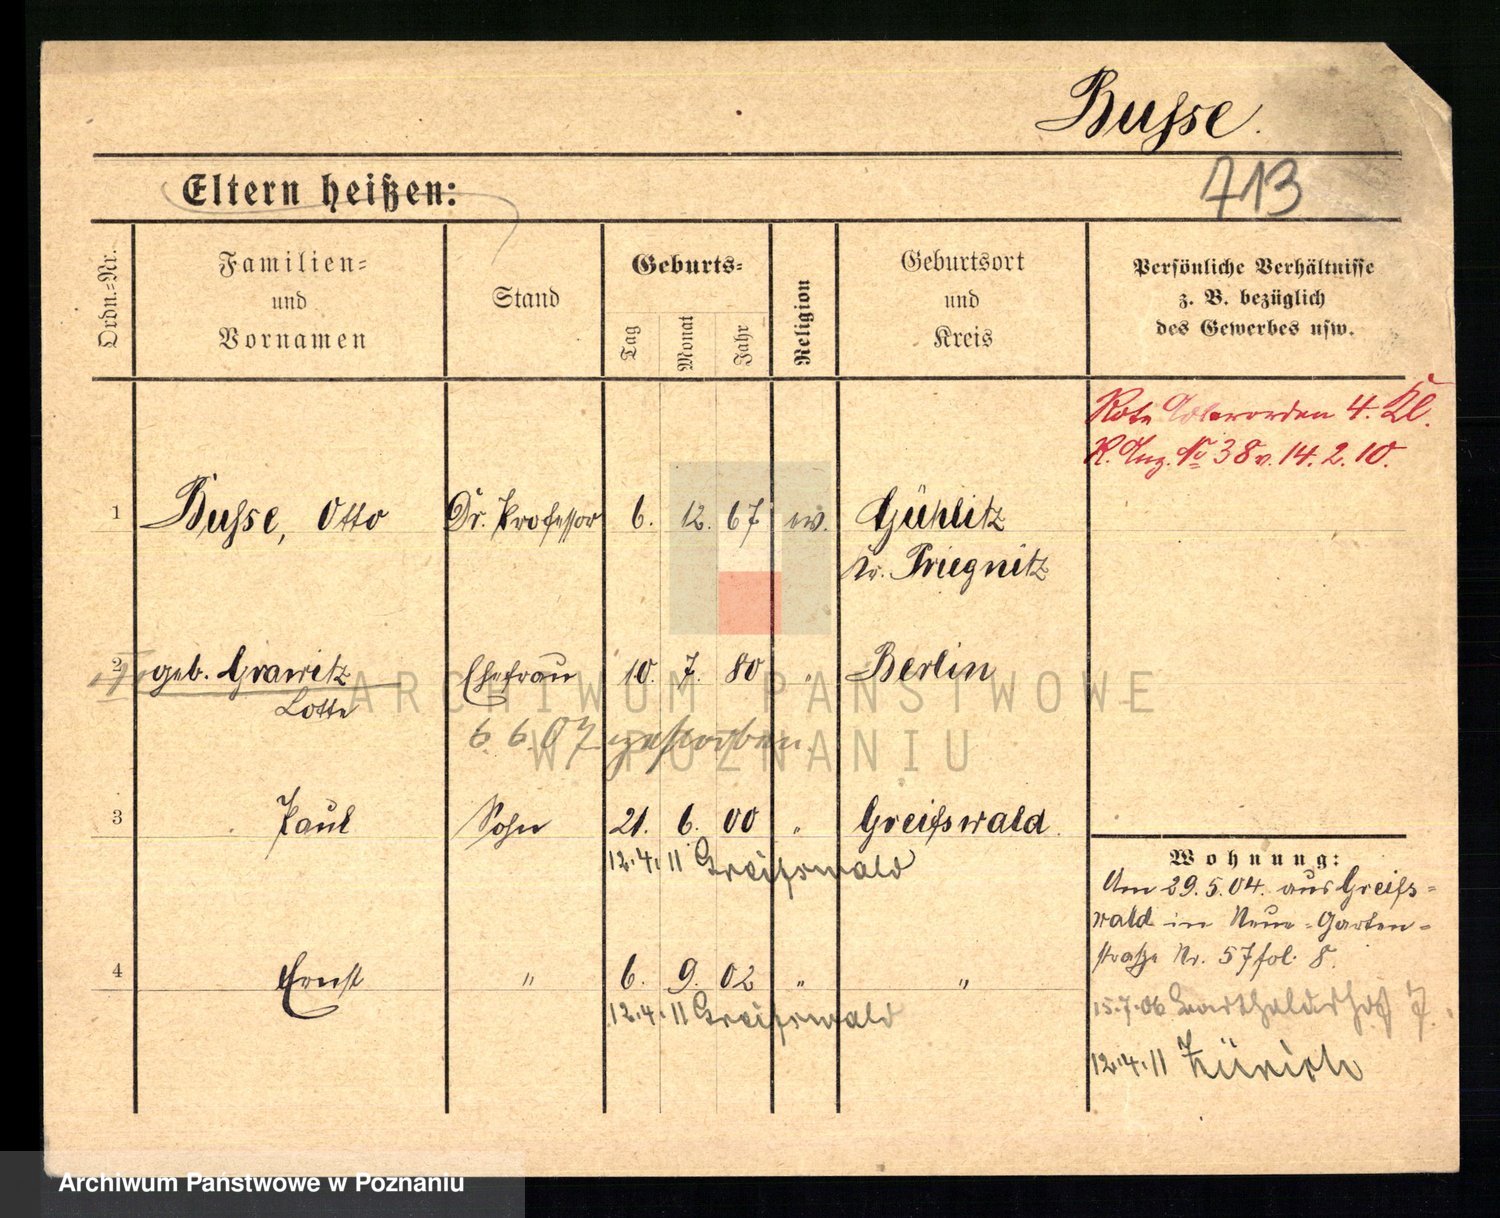 Busse.
713
Eltern heißen:
Ordn.=Nr.
Familien=
und
Vornamen
Stand
Geburts=
Tag
Monat
Jahr
Religion
Geburtsort
und
Kreis
Persönliche Verhältnisse
z. B. bezüglich
des Gewerbes usw.
Rote Adlerorden 4. Kl.
R. Anz. No 38 v. 14. 2. 10.
1 Busse, Otto Dr. Professor 6. 12. 67 ev. Gühlitz
Kr. Priegnitz
2 geb. Grawitz Ehefrau 10. 7. 80 " Berlin
Lotte
6. 6. 07 gestorben.
3 Paul Sohn 21. 6. 00 " Greifswald
12.4.11 Greifswald
4 Ernst " 6. 9. 02 " "
12.4.11 Greifswald
Wohnung:
Am 29.5.04. aus Greifs=
wald in Neue=Garten=
straße Nr. 57 fol. 8.
15.7.06 7.
12.4.11 Zürich
ARCHIWUM PAŃSTWOWE
W POZNANIU
Archiwum Państwowe w Poznaniu